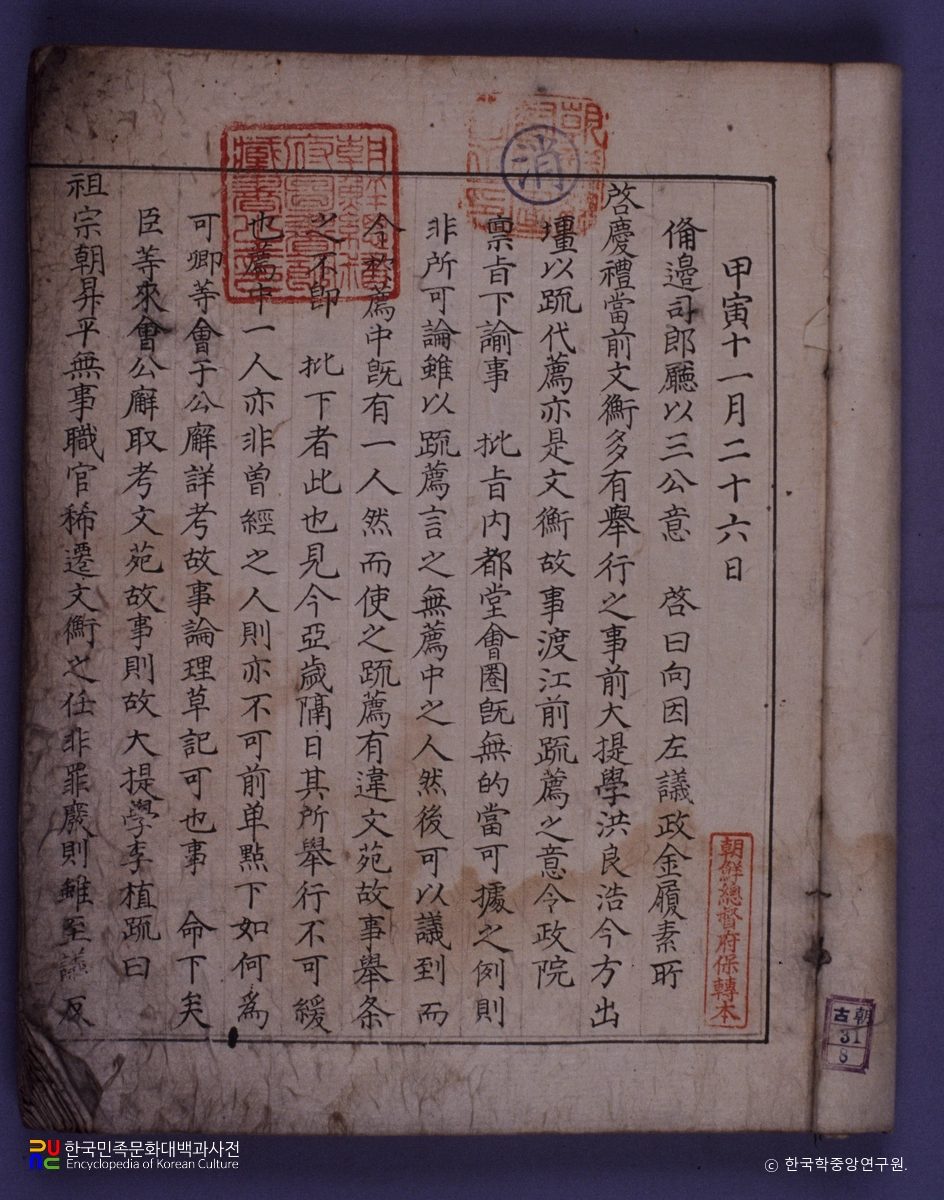 甲寅十一月二十六日
備邊司郎廳以三公意 啓曰向因左議政金履素所
啓慶禮當前文衡多有擧行之事前大提學洪良浩今方出
疆以䟽代薦亦是文衡故事渡江前䟽薦之意令政院
禀旨下諭事 批旨內都堂會圈旣無的當可據之例則
非所可論雖以䟽薦言之無薦中之人然後可以議到而
今於薦中旣有一人然而使之䟽薦有違文苑故事擧条
之不卽 批下者此也見今亞歲隔日其所擧行不可緩
也薦中一人亦非曾經之人則亦不可前单點下如何爲
可卿等會于公廨詳考故事論理草記可也事 命下矣
臣等來會公廨取考文苑故事則故大提學李植䟽曰
祖宗朝昇平無事職官稀遷文衡之任非罪廢則雖至議政
消
朝鮮總督府圖書館藏書之印
朝鮮總督府保轉本
朝古
31
8
한국민족문화대백과사전
Encyclopedia of Korean Culture
ⓒ 한국학중앙연구원.